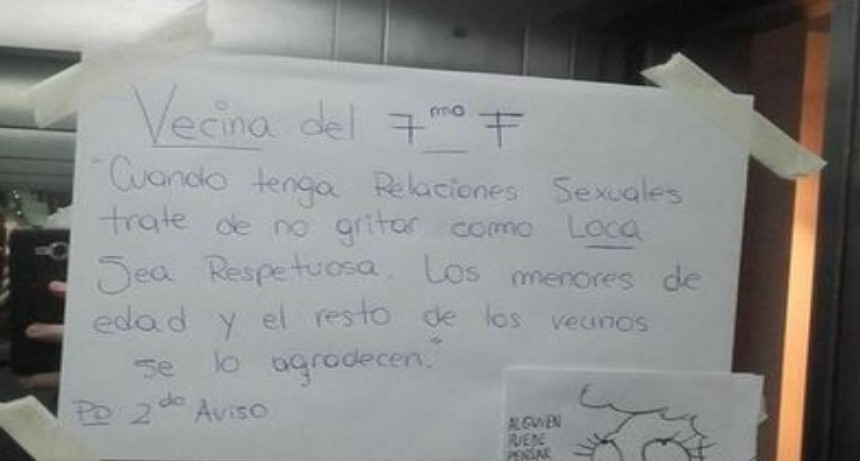 Vecina del 7mo F
"Cuando tenga Relaciones Sexuales
trate de no gritar como Loca
Sea Respetuosa. Los menores de
edad y el resto de los vecinos
se lo agradecen."
PD: 2do Aviso
ALGUIEN
PUEDE
PENSAR